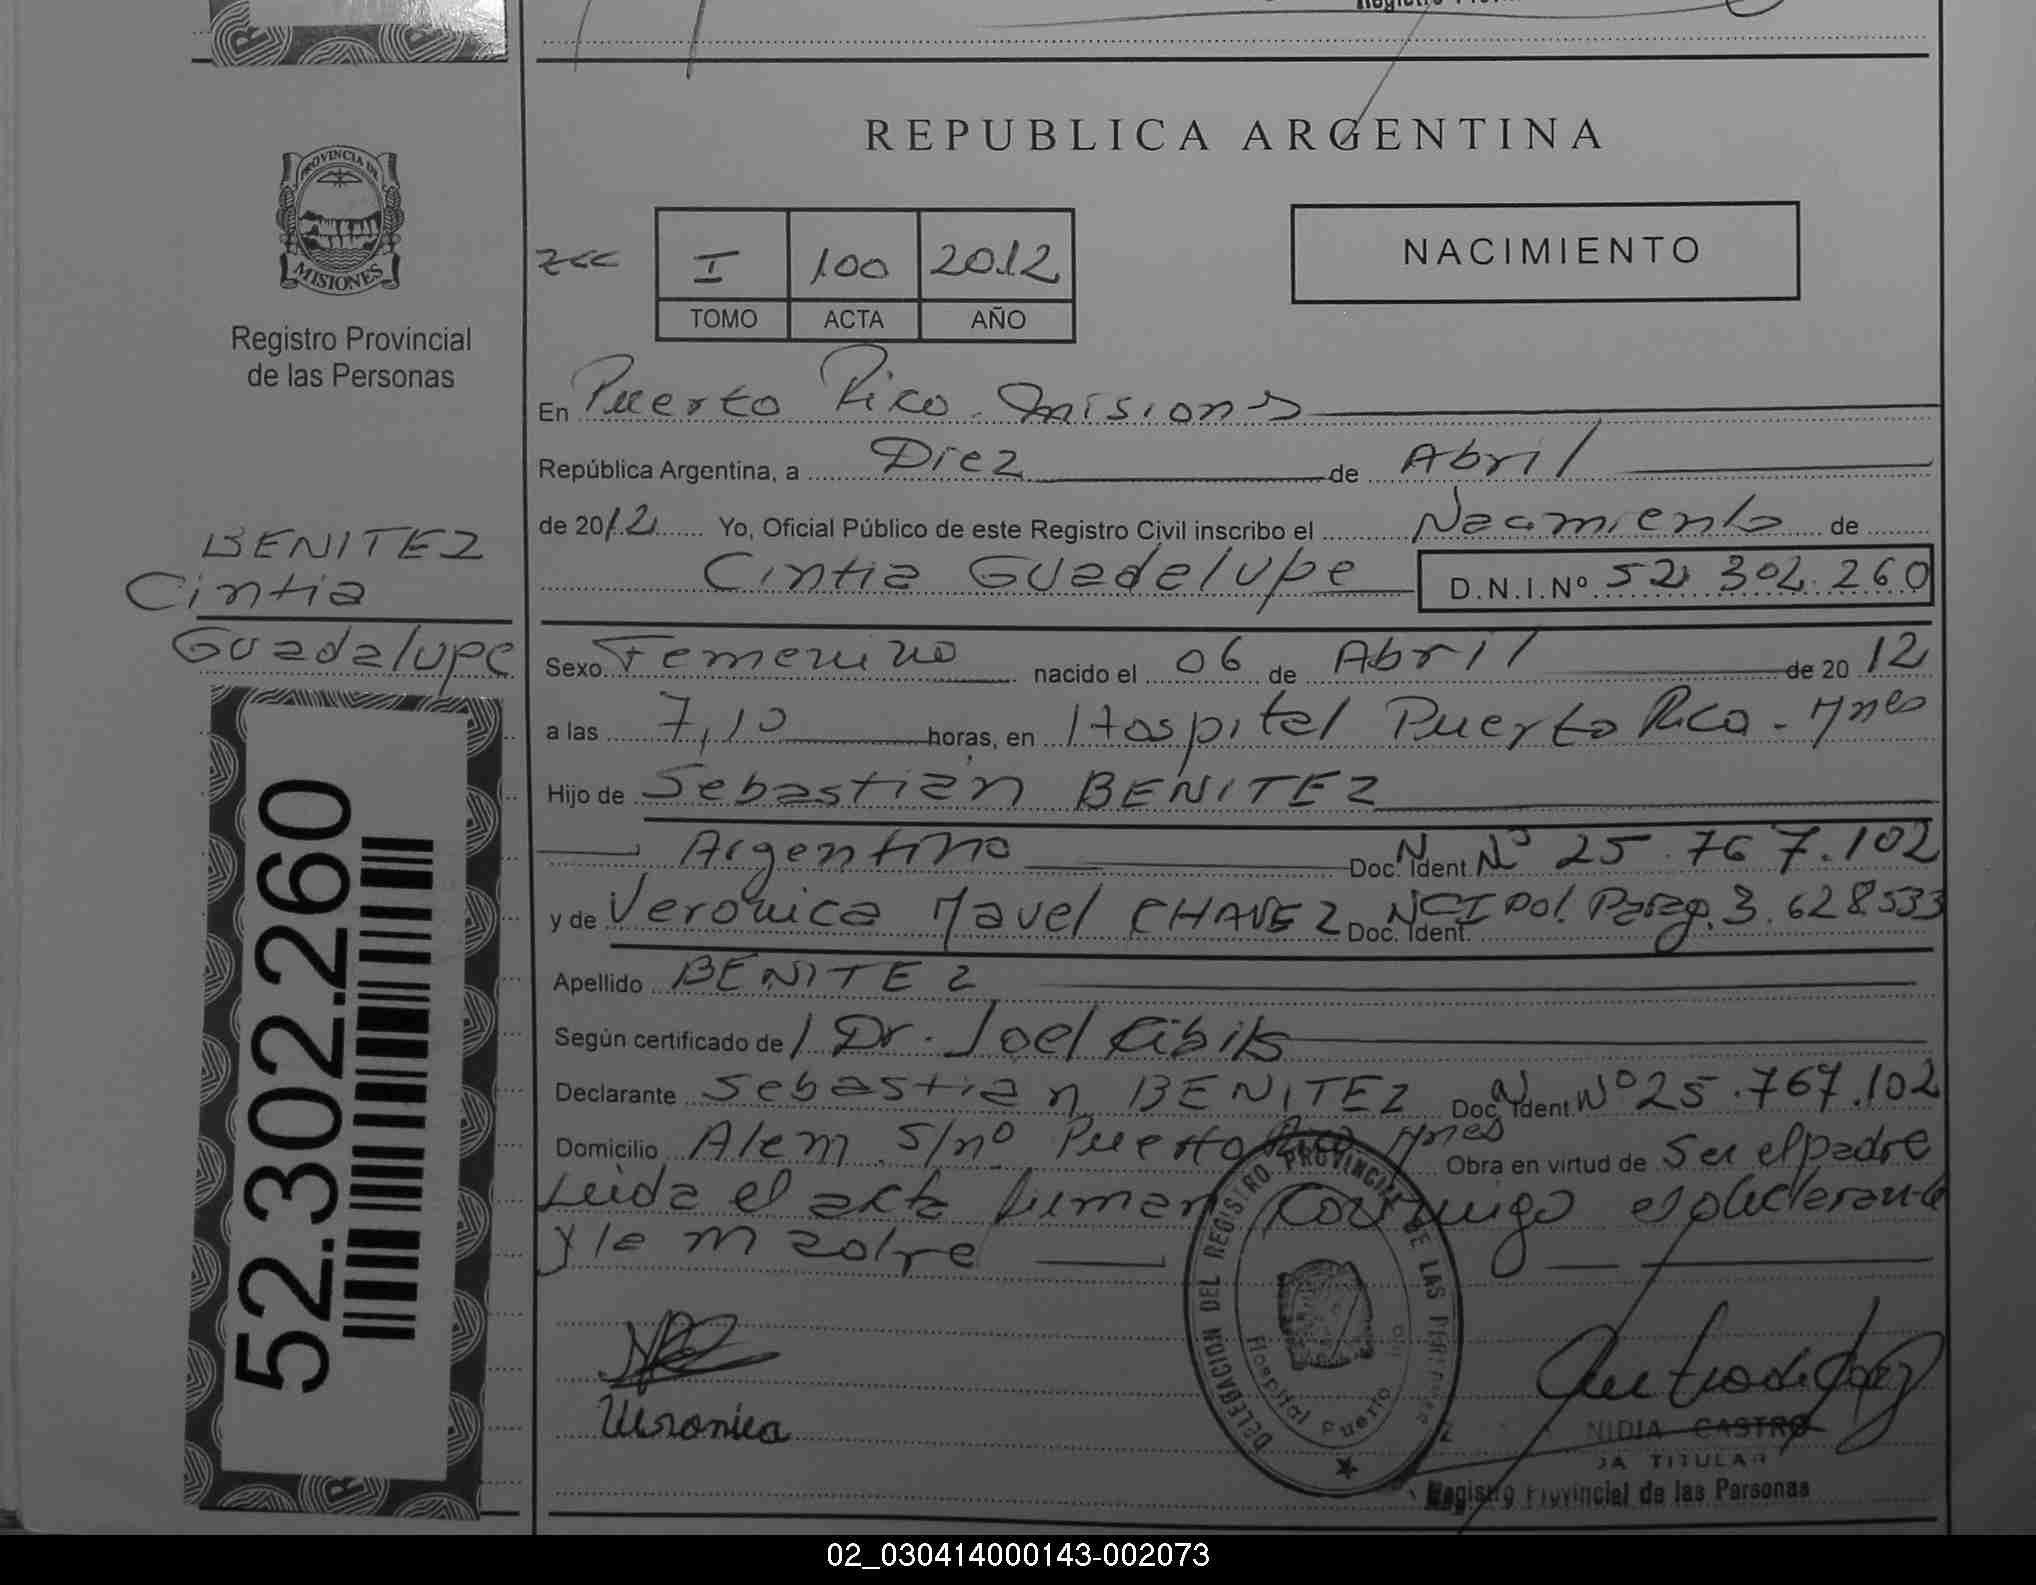 REPUBLICA ARGENTINA
PROVINCIA DE
MISIONES
Registro Provincial
de las Personas
I 100 2012
TOMO ACTA AÑO
NACIMIENTO
En Puerto Rico Misiones
República Argentina, a Diez de Abril
de 2012 Yo, Oficial Público de este Registro Civil inscribo el Nacimiento de
Cintia Guadelupe D.N.I.Nº 52 302.260
BENITEZ
Cintia
Guadalupe
Sexo Femenino nacido el 06 de Abril de 2012
a las 7,10 horas, en Hospital Puerto Rico - Mnes
Hijo de Sebastián BENITEZ
Argentino Doc. Ident. Nº 25.767.102
y de Veronica Mavel CHAVEZ Doc. Ident. CI Pol. Parag. 3.628.533
Apellido BENITEZ
Según certificado de Dr. Joel
Declarante Sebastian BENITEZ Doc. Ident Nº 25.767.102
Domicilio Alem S/nº Puerto Rico Mnes Obra en virtud de Ser el padre
Leida el acta firman conmigo el declarante
y la madre
Veronica
DELEGACION DEL REGISTRO PROVINCIAL DE LAS
Hospital Puerto
NIDIA CASTRO
TITULAR
Registro Provincial de las Personas
52.302.260
02_030414000143-002073